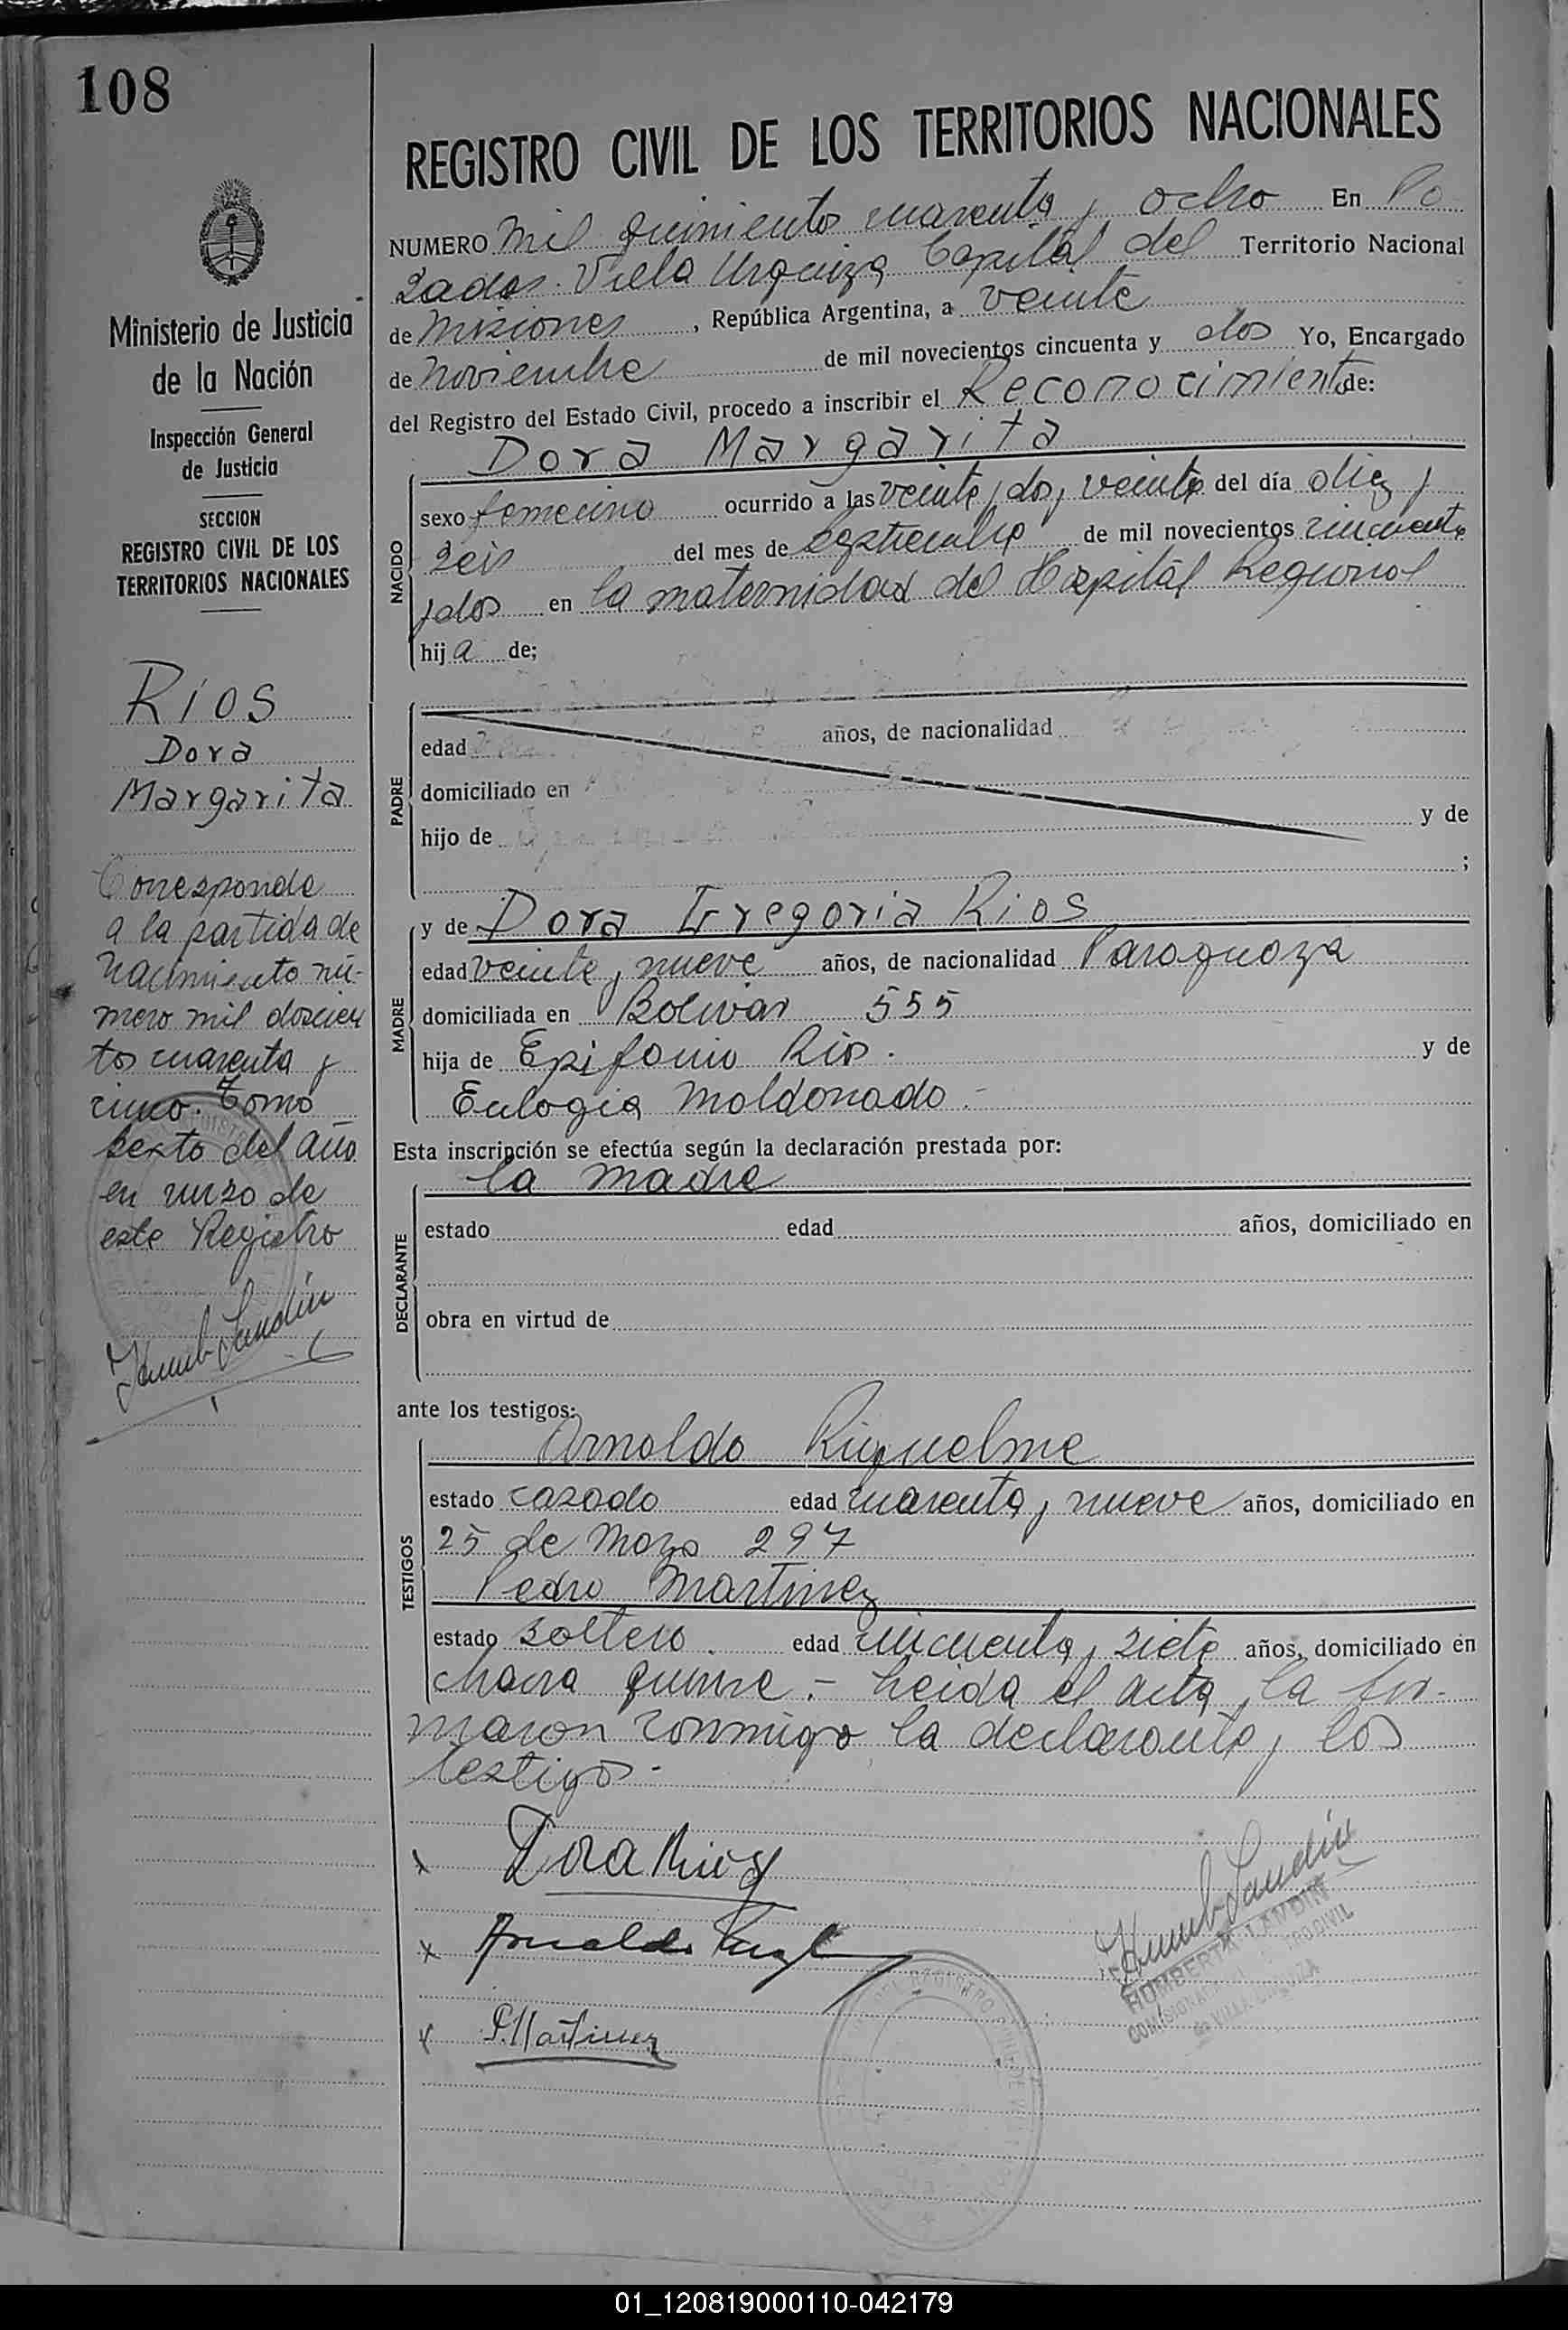 108
Ministerio de Justicia
de la Nación
Inspección General
de Justicia
SECCION
REGISTRO CIVIL DE LOS
TERRITORIOS NACIONALES
Rios
Dora
Margarita
Corresponde
a la partida de
nacimiento nú-
mero mil doscien
tos cuarenta y
cinco. Tomo
sexto del año
en curso de
este Registro
Humb Landin
REGISTRO CIVIL DE LOS TERRITORIOS NACIONALES
NUMERO Mil quinientos cuarenta y ocho En Po
sadas. Villa Urquiza Capital del Territorio Nacional
de Misiones, República Argentina, a veinte
de noviembre de mil novecientos cincuenta y dos Yo, Encargado
del Registro del Estado Civil, procedo a inscribir el Reconocimiento de:
Dora Margarita
NACIDO
sexo femenino ocurrido a las veinte y dos y veinte del día diez y
seis del mes de septiembre de mil novecientos cincuenta
y dos en la maternidad del Hospital Regional
hija de;
PADRE
edad años, de nacionalidad
domiciliado en
hijo de y de
;
MADRE
y de Dora Gregoria Rios
edad veinte y nueve años, de nacionalidad Paraguaya
domiciliada en Bolivar 555
hija de Epifanio Rios. y de
Eulogia Maldonado.-
Esta inscripción se efectúa según la declaración prestada por:
la madre
DECLARANTE
estado edad años, domiciliado en
obra en virtud de
ante los testigos:
TESTIGOS
Arnoldo Riquelme
estado casado edad cuarenta y nueve años, domiciliado en
25 de Mayo 297
Pedro Martinez
estado soltero. edad cincuenta y siete años, domiciliado en
chacra quince.- Leida el acta, la fir-
maron conmigo la declarante y los
testigos-
x Dora Rios
x Arnoldo
x P. Martinez
Humb Landin
HUMBERTO LANDIN
01_120819000110-042179